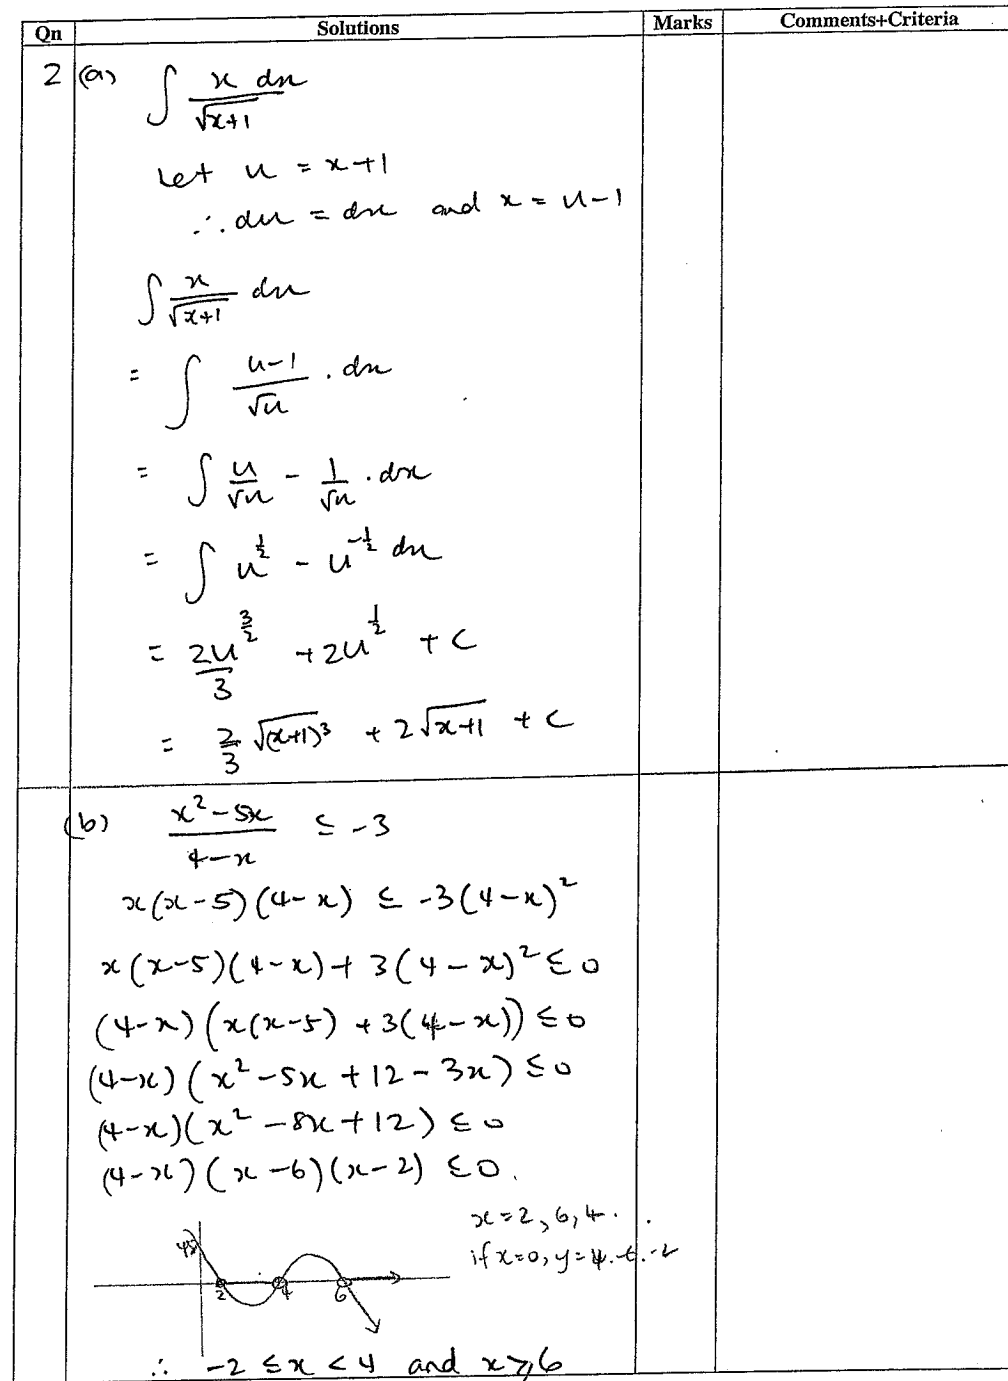 Qn Solutions Marks Comments+Criteria
2 (a) ∫ x dx / √(x+1)
Let u = x+1
∴ du = dx and x = u-1
∫ x/√(x+1) dx
= ∫ (u-1)/√u . dx
= ∫ u/√u - 1/√u . dx
= ∫ u^(1/2) - u^(-1/2) du
= 2u^(3/2)/3 + 2u^(1/2) + C
= 2/3 √(x+1)³ + 2√(x+1) + C
(b) (x² - 5x)/(4-x) ≤ -3
x(x-5)(4-x) ≤ -3(4-x)²
x(x-5)(4-x) + 3(4-x)² ≤ 0
(4-x)(x(x-5) + 3(4-x)) ≤ 0
(4-x)(x² - 5x + 12 - 3x) ≤ 0
(4-x)(x² - 8x + 12) ≤ 0
(4-x)(x-6)(x-2) ≤ 0.
x = 2, 6, 4.
if x=0, y=4.-6.-2
48
2 4 6
∴ -2 ≤ x < 4 and x ≥ 6